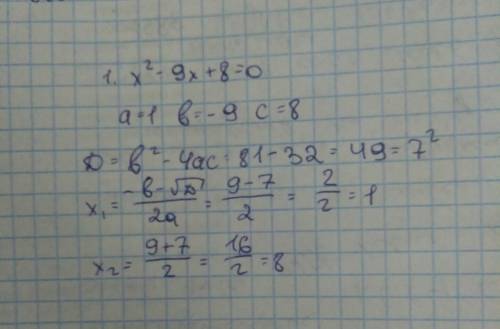 1. x² - 9x + 8 = 0
a = 1 b = -9 c = 8
D = b² - 4ac = 81 - 32 = 49 = 7²
x₁ = (-b - √D)/2a = (9 - 7)/2 = 2/2 = 1
x₂ = (9 + 7)/2 = 16/2 = 8